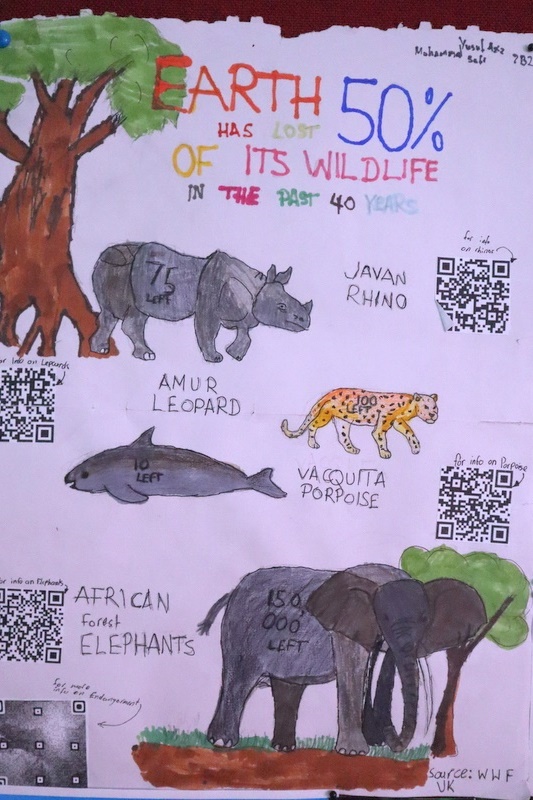 Yusuf Aziz
Mohammed Safi 7B2
EARTH 50%
HAS LOST
OF ITS WILDLIFE
IN THE PAST 40 YEARS
for info
on rhinos
75
LEFT
JAVAN
RHINO
for Info on Leopards
AMUR
LEOPARD
100
LEFT
10
LEFT
VACQUITA
PORPOISE
for info on Porpoise
for info on Elephants
AFRICAN
forest
ELEPHANTS
150
000
LEFT
for more
info on Endangerment
source: WWF
UK